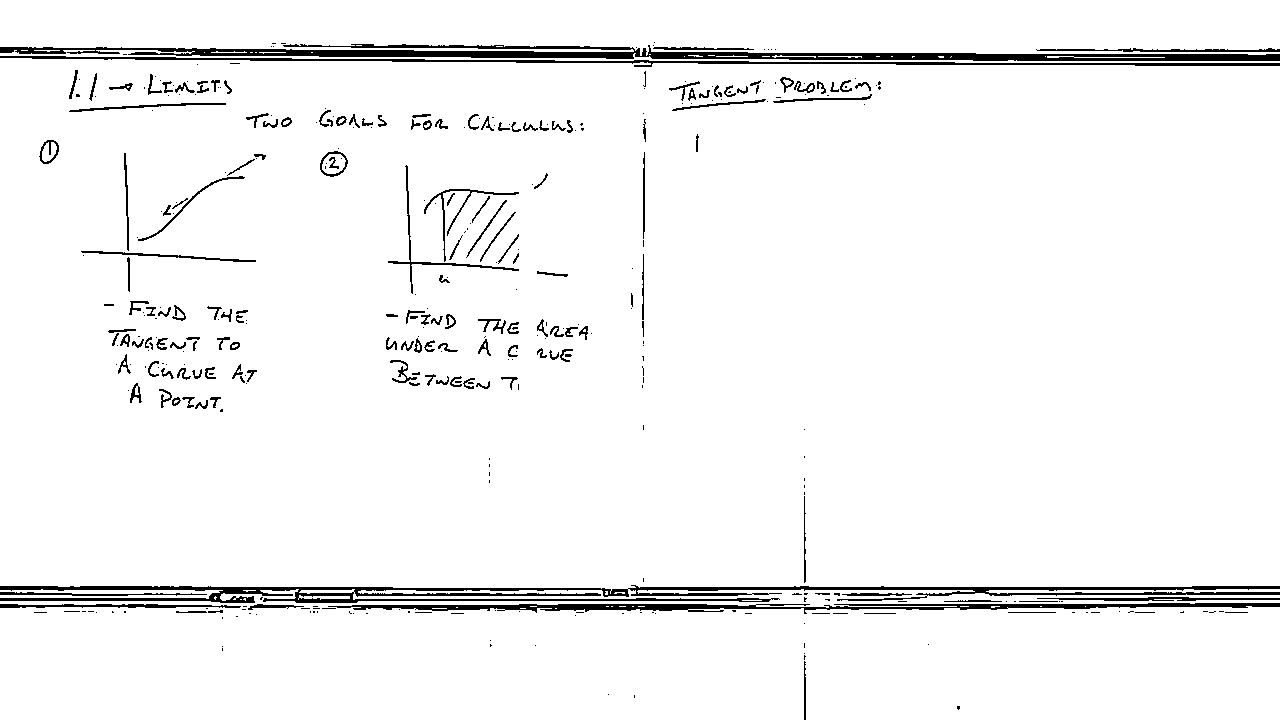 1.1 → LIMITS
TWO GOALS FOR CALCULUS:
①
- FIND THE
TANGENT TO
A CURVE AT
A POINT.
②
a
- FIND THE AREA
UNDER A C RVE
BETWEEN
TANGENT PROBLEM: